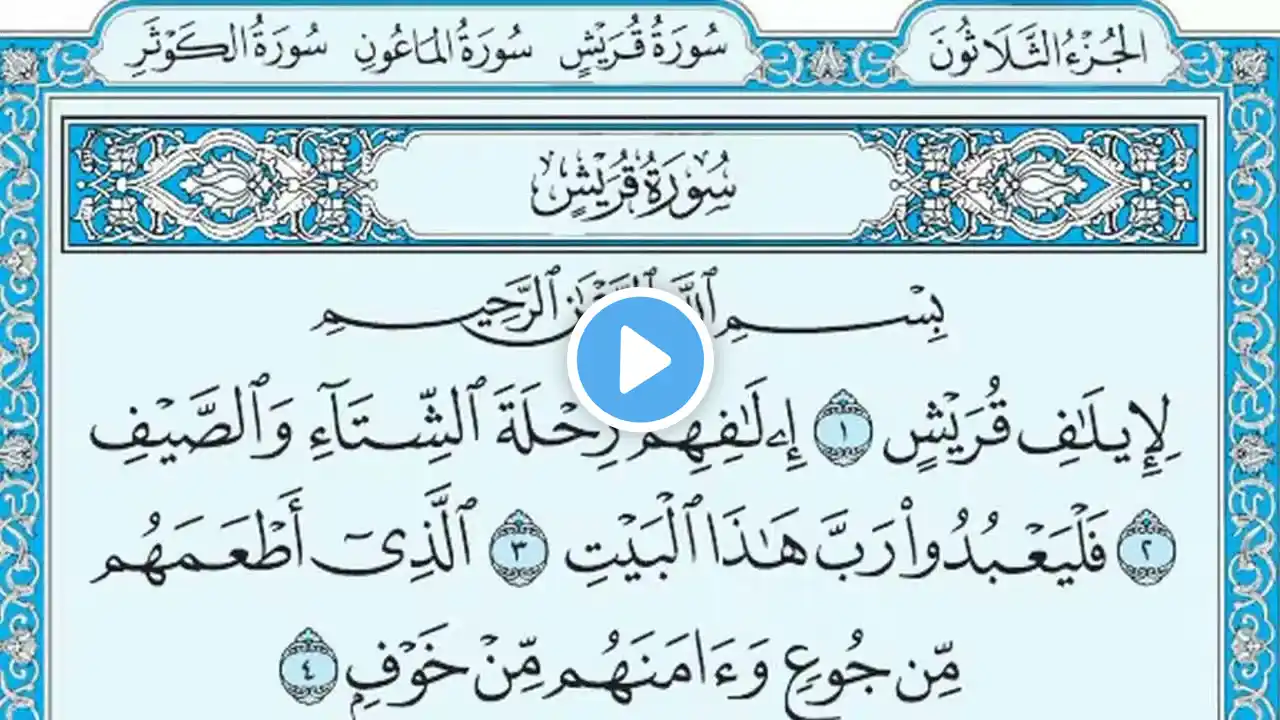 الجُزْءُ الثَّلَاثُونَ
سُورَةُ قُرَيْشٍ سُورَةُ المَاعُونِ سُورَةُ الكَوْثَرِ
سُورَةُ قُرَيْشٍ
بِسْمِ ٱللَّهِ ٱلرَّحْمَٰنِ ٱلرَّحِيمِ
لِإِيلَٰفِ قُرَيْشٍ ١ إِۦلَٰفِهِمْ رِحْلَةَ ٱلشِّتَآءِ وَٱلصَّيْفِ
٢ فَلْيَعْبُدُوا۟ رَبَّ هَٰذَا ٱلْبَيْتِ ٣ ٱلَّذِىٓ أَطْعَمَهُم
مِّن جُوعٍ وَءَامَنَهُم مِّنْ خَوْفٍۭ ٤